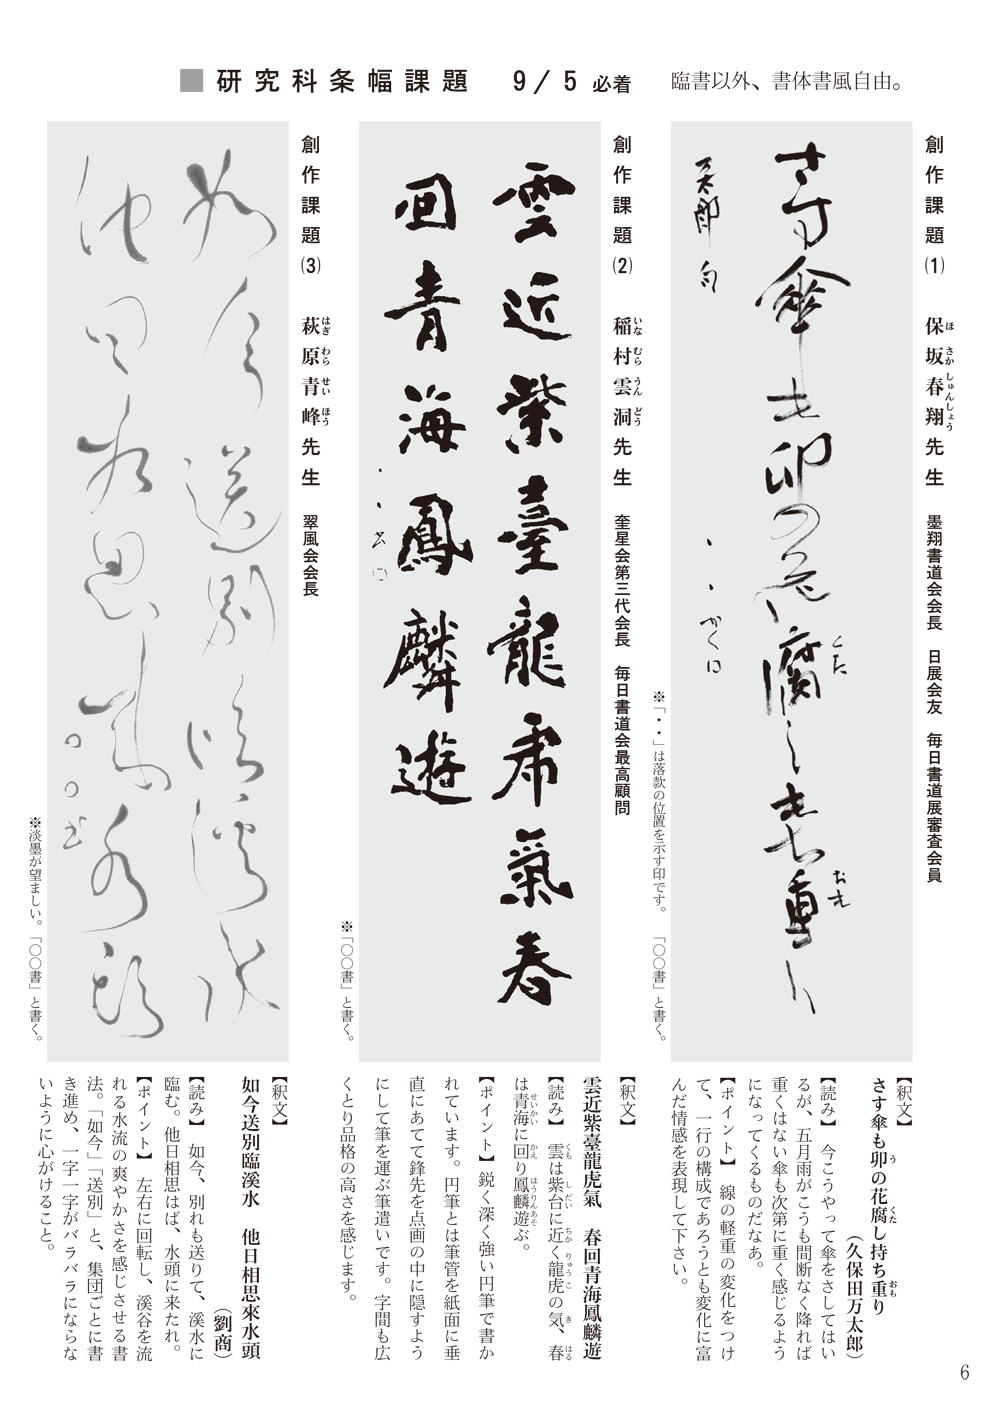 ■研究科条幅課題　9/5必着　臨書以外、書体書風自由。
創作課題(1)　保坂春翔先生　墨翔書道会会長　日展会友　毎日書道展審査会員
ほ　さか　しゅんしょう
さす傘も卯の花腐しも持重り
くた
おも
万太郎句
・・かくは
※「・・」は落款の位置を示す印です。　「〇〇書」と書く。
【釈文】
さす傘も卯の花腐し持ち重り
う　くた　おも
（久保田万太郎）
【読み】　今こうやって傘をさしてはい
るが、五月雨がこうも間断なく降れば
重くはない傘も次第に重く感じるよう
になってくるものだなあ。
【ポイント】　線の軽重の変化をつけ
て、一行の構成であろうとも変化に富
んだ情感を表現して下さい。
創作課題(2)　稲村雲洞先生　奎星会第三代会長　毎日書道会最高顧問
いな　むら　うん　どう
雲近紫臺龍虎氣春
回青海鳳麟遊
※「〇〇書」と書く。
【釈文】
雲近紫臺龍虎氣　春回青海鳳麟遊
【読み】　雲は紫台に近く龍虎の気、春
くも　しだい　ちか　りゅうこ　き　はる
は青海に回り鳳麟遊ぶ。
せいかい　かえ　ほうりんあそ
【ポイント】　鋭く深く強い円筆で書か
れています。円筆とは筆管を紙面に垂
直にあてて鋒先を点画の中に隠すよう
にして筆を運ぶ筆遣いです。字間も広
くとり品格の高さを感じます。
創作課題(3)　萩原青峰先生　翠風会会長
はぎ　わら　せい　ほう
如今送別臨溪水
他日相思來水頭
〇〇書
※淡墨が望ましい。「〇〇書」と書く。
【釈文】
如今送別臨溪水　他日相思來水頭
（劉商）
【読み】　如今、別れも送りて、溪水に
臨む。他日相思はば、水頭に来たれ。
【ポイント】　左右に回転し、溪谷を流
れる水流の爽やかさを感じさせる書
法。「如今」「送別」と、集団ごとに書
き進め、一字一字がバラバラにならな
いように心がけること。
6